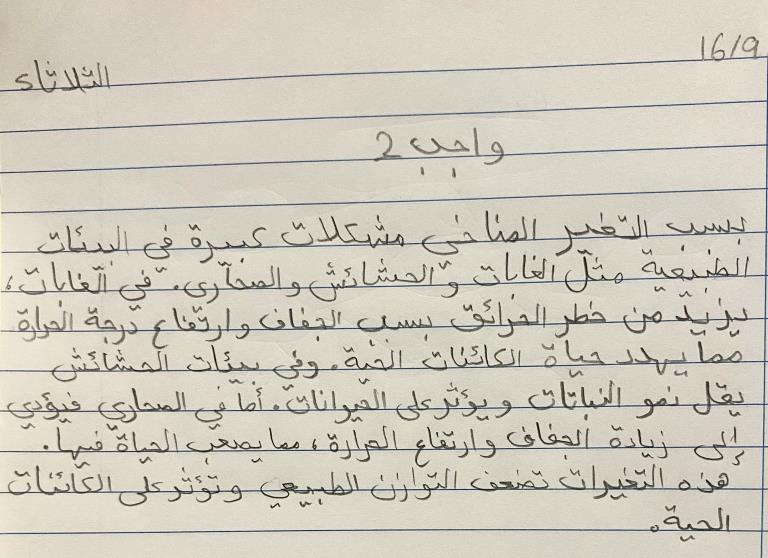 16/9
الثلاثاء
واجب 2
يسبب التغير المناخي مشكلات كبيرة في البيئات
الطبيعية مثل الغابات والحشائش والصحاري. في الغابات،
يزيد من خطر الحرائق بسبب الجفاف وارتفاع درجة الحرارة
مما يهدد حياة الكائنات الحية. وفي بيئات الحشائش
يقل نمو النباتات ويؤثر على الحيوانات. أما في الصحاري فيؤدي
إلى زيادة الجفاف وارتفاع الحرارة، مما يصعب الحياة فيها.
هذه التغيرات تضعف التوازن الطبيعي وتؤثر على الكائنات
الحية.